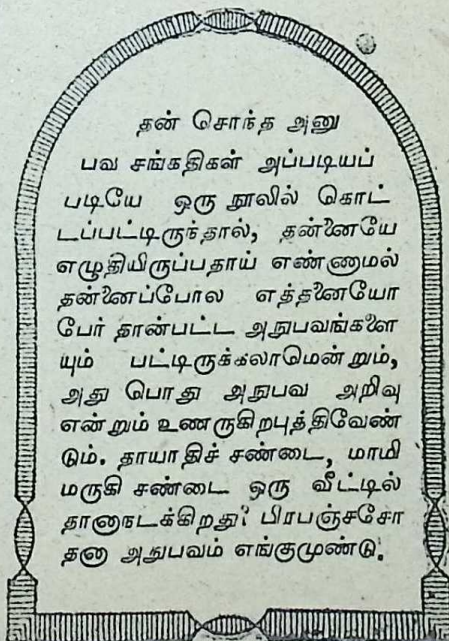 தன் சொந்த அனு
பவ சங்கதிகள் அப்படியப்
படியே ஒரு நூலில் கொட்
டப்பட்டிருந்தால், தன்னையே
எழுதியிருப்பதாய் எண்ணாமல்
தன்னைப்போல எத்தனையோ
பேர் தான்பட்ட அநுபவங்களை
யும் பட்டிருக்கலாமென்றும்,
அது பொது அநுபவ அறிவு
என்றும் உணருகிறபுத்திவேண்
டும். தாயாதிச் சண்டை, மாமி
மருகி சண்டை ஒரு வீட்டில்
தானாநடக்கிறது? பிரபஞ்சசோ
தனா அநுபவம் எங்குமுண்டு.